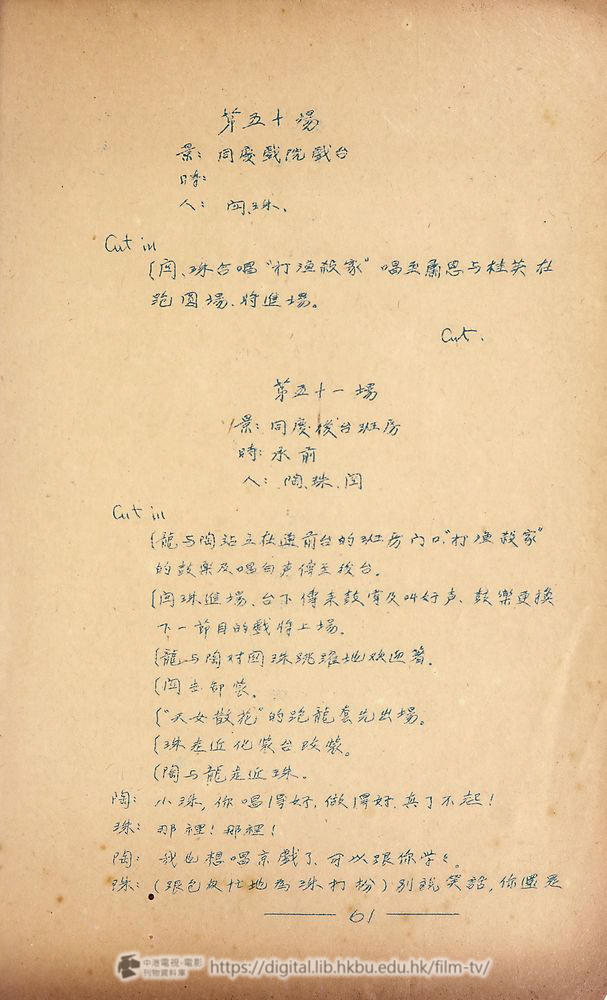 第五十場
景：同慶戲院戲台
時：
人：闵、珠、
Cut in
（闵、珠合唱“打漁殺家”唱至蕭恩与桂英在
跑圓場、將進場。
Cut.
第五十一場
景：同慶後台班房
時：承前
人：陶、珠、闵
Cut in
（龍与陶站立在連前台的班房门口“打漁殺家”
的鼓樂及唱白声傳至後台。
（闵珠進場、台下傳来鼓掌及叫好声、鼓樂更換
下一節目的戲將上場。
（龍与陶对闵珠跳躍地欢迎着。
（闵去卸裝。
（“天女散花”的跑龍套先出場。
（珠走近化裝台改裝。
（陶与龍走近珠．
陶：小珠，你唱得好，做得好，真了不起！
珠：那裡！那裡！
陶：我也想唱京戲了，可以跟你学々。
珠：（跟包反忙地為珠打扮）別說笑話，你還是
61
中港電視・電影
刊物資料庫
https://digital.lib.hkbu.edu.hk/film-tv/